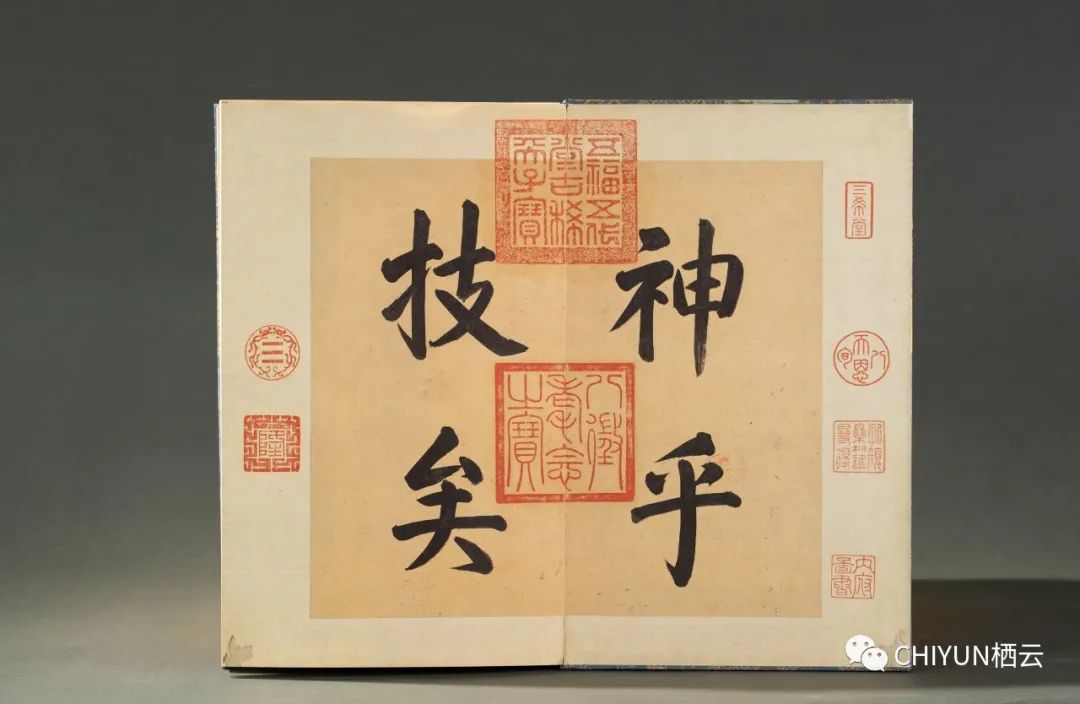 神乎
技矣
五福五代
堂古稀
天子寶
八徵
耄念
之寶
三希堂
天恩八旬
内府
圖書
隆
CHIYUN栖云